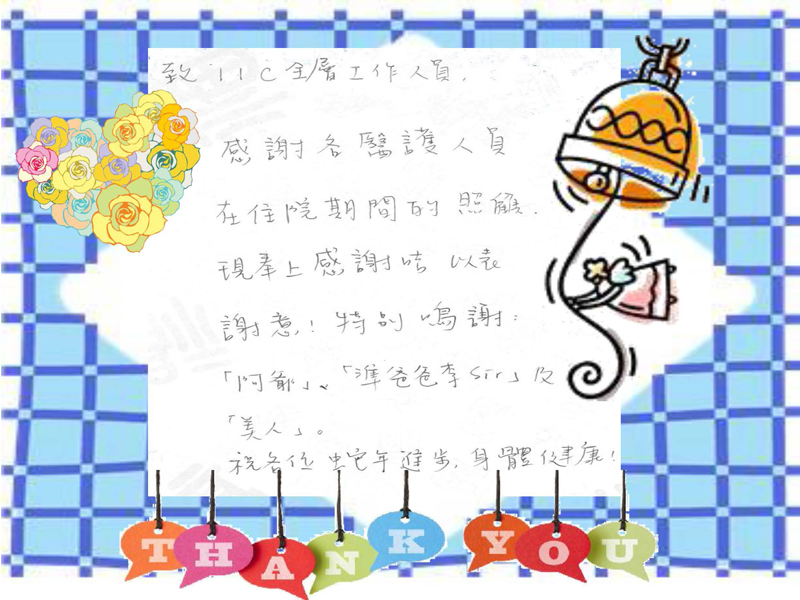 致 11C全層工作人員,
感謝各醫護人員
在住院期間的照顧.
現奉上感謝咭 以表
謝意! 特別鳴謝:
「阿爺」、「準爸爸李Sir」及
「美人」。
祝各位 蛇年進步, 身體健康!
THANK YOU